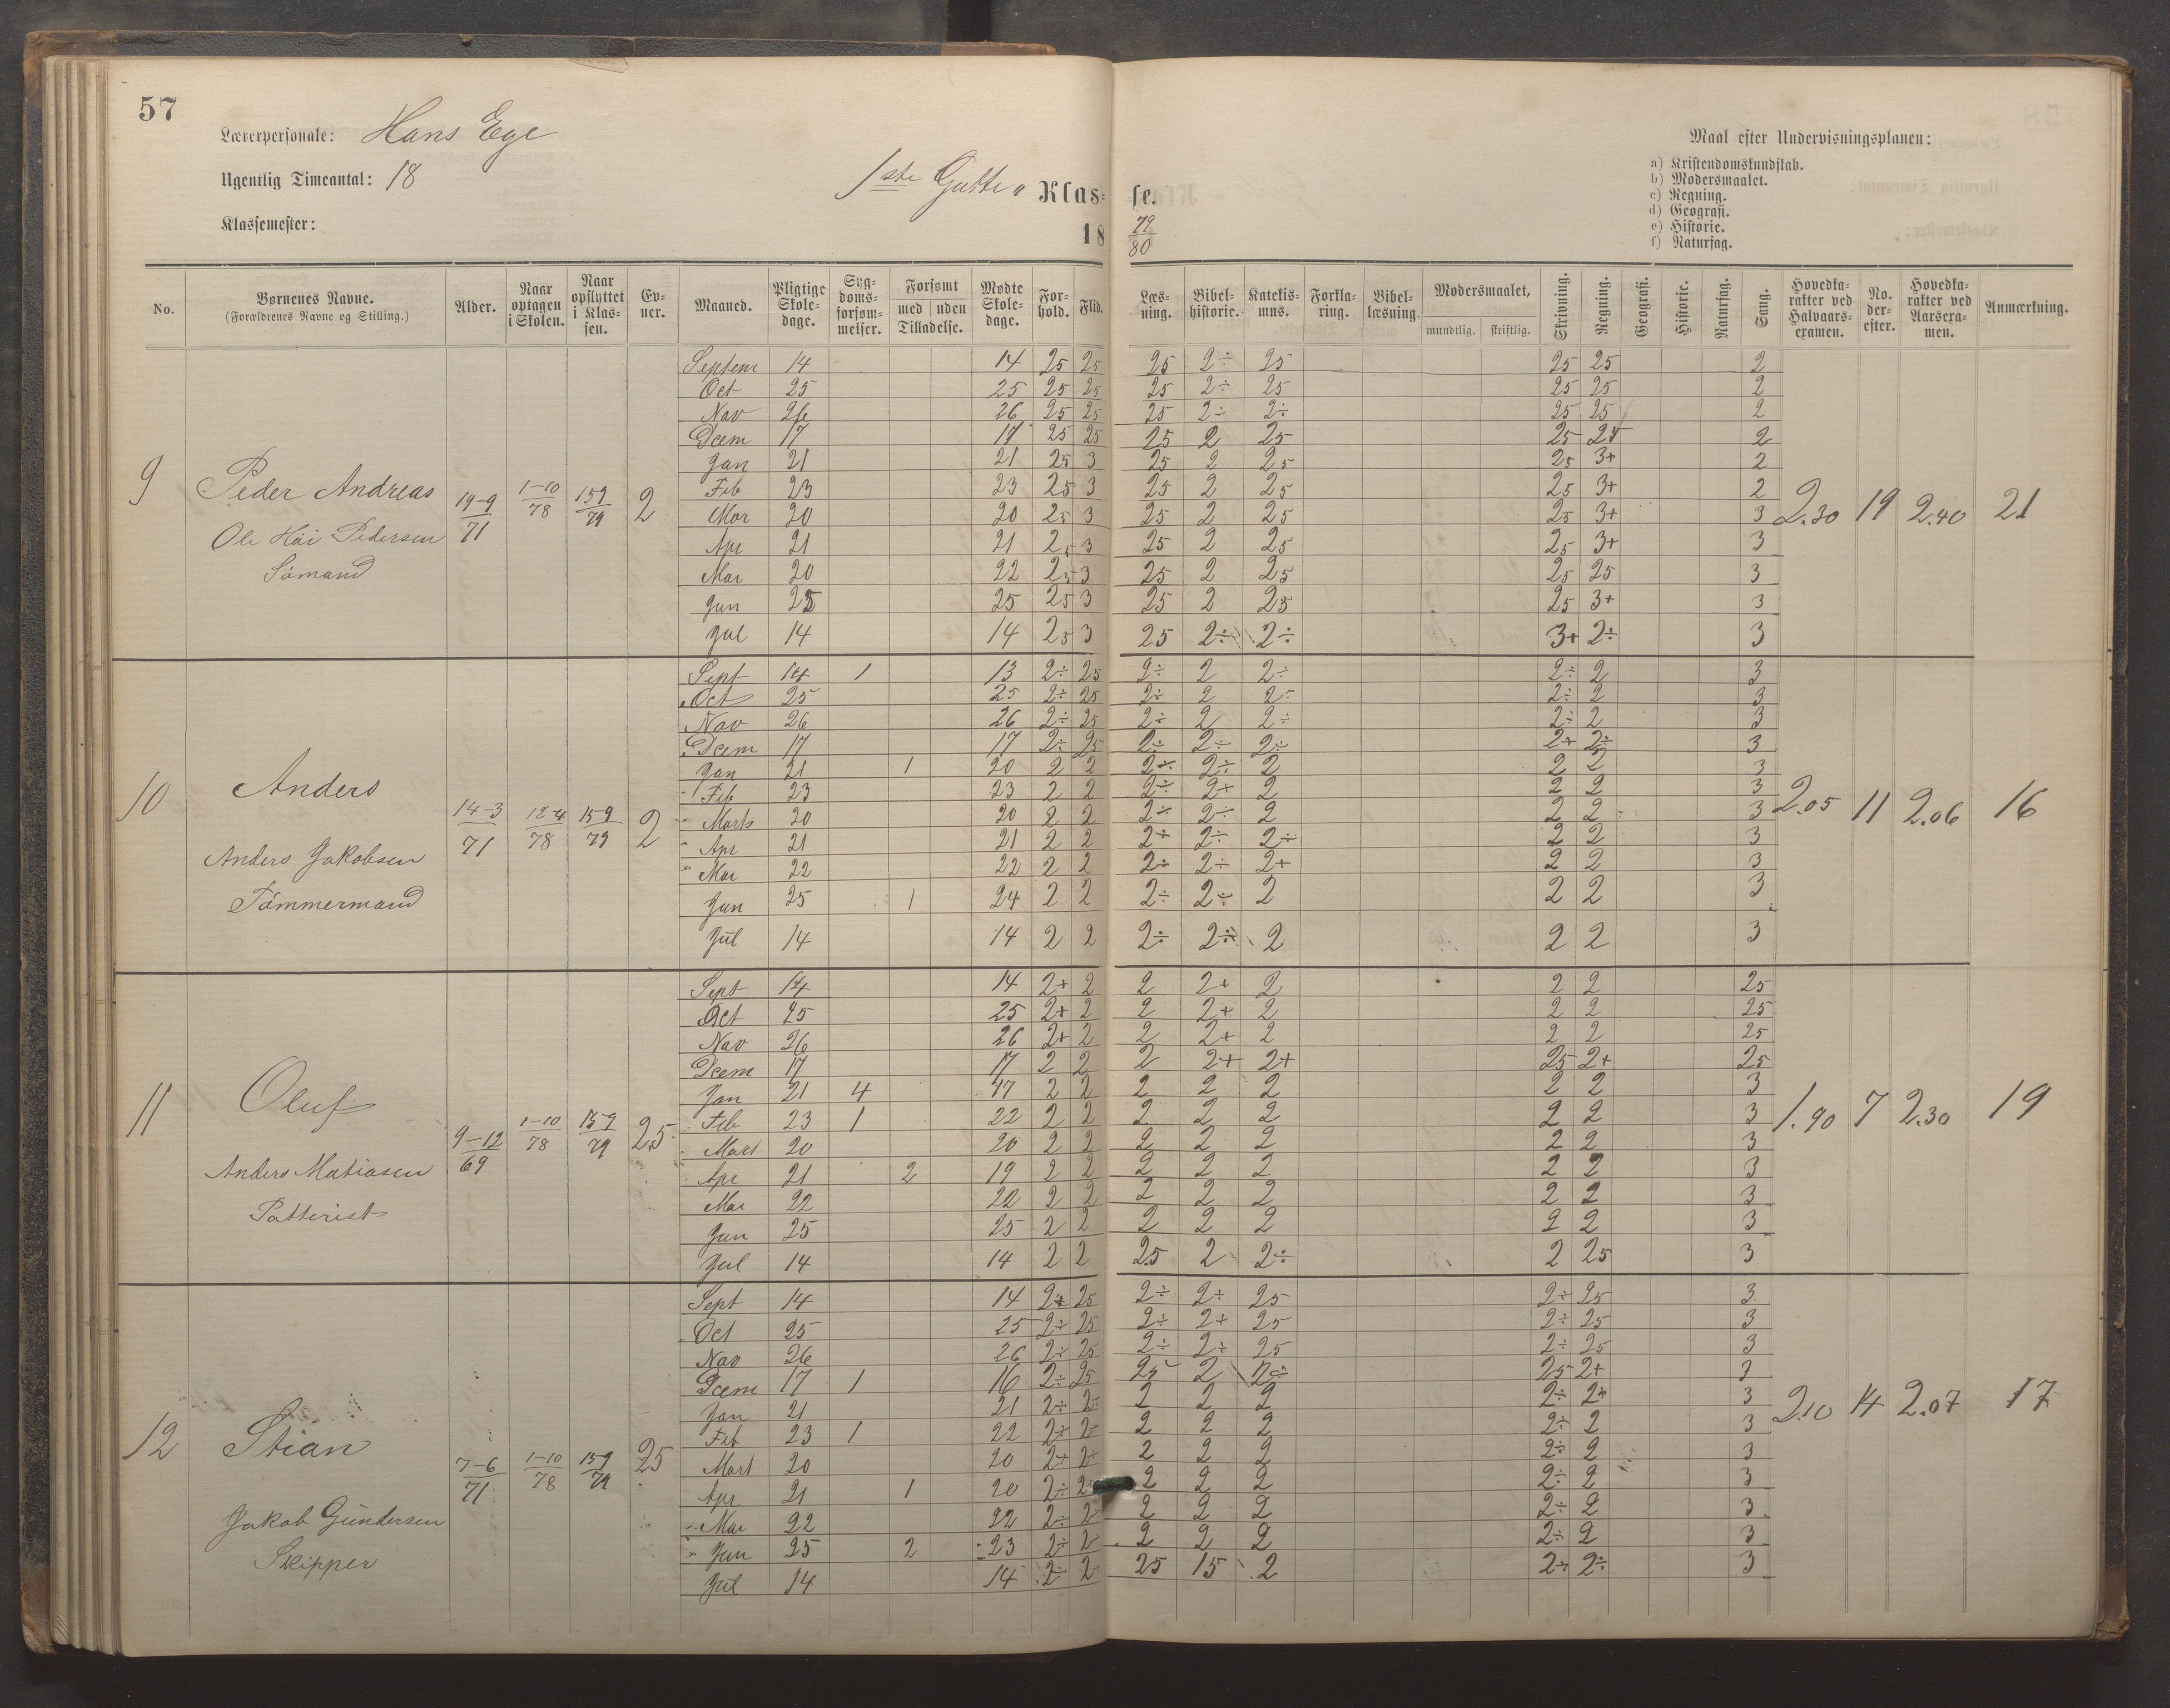 57
Lærerpersonale: Hans Ege
Ugentlig Timeantal: 18
Klassemester:
1ste Gutte Klasse.
18 79/80
Maal efter Undervisningsplanen:
a) Kristendomskundskab.
b) Modersmaalet.
c) Regning.
d) Geografi.
e) Historie.
f) Naturfag.
No. | Børnenes Navne. (Forældrenes Navne og Stilling.) | Alder. | Naar optagen i Skolen. | Naar opflyttet i Klassen. | Evner. | Maaned. | Pligtige Skoledage. | Sygdomsforsømmelser. | Forsømt med uden Tilladelse. | Mødte Skoledage. | Forhold. | Flid. | Læsning. | Bibelhistorie. | Katekismus. | Forklaring. | Bibellæsning. | Modersmaalet, mundtlig. skriftlig. | Skrivning. | Regning. | Geografi. | Historie. | Naturfag. | Sang. | Hovedkarakter ved Halvaarsexamen. | No. derefter. | Hovedkarakter ved Aarsexamen. | Anmærkning.
9 Peder Andreas
Ole Høi Pedersen
Sømand
19-9/71 1-10/78 159/79 2
Septem 14 14 25 25 25 2÷ 25 25 25 2
Oct 25 25 25 25 25 2÷ 25 25 25 2
Nov 26 26 25 25 25 2÷ 2÷ 25 25 2
Dcem 17 17 25 25 25 2 25 25 25 2
Jan 21 21 25 3 25 2 25 25 3+ 2
Feb 23 23 25 3 25 2 25 25 3+ 2
Mar 20 20 25 3 25 2 25 25 3+ 3
Apr 21 21 25 3 25 2 25 25 3+ 3
Mai 20 22 25 3 25 2 25 25 25 3
Jun 25 25 25 3 25 2 25 25 3+ 3
Jul 14 14 25 3 25 2÷ 2÷ 3+ 2÷ 3
2.30 19 2.40 21
10 Anders
Anders Jakobsen
Tømmermand
14-3/71 12-4/78 159/79 2
Sept 14 1 13 2÷ 25 2÷ 2 2÷ 2÷ 2 3
Oct 25 25 2÷ 25 2÷ 2 2÷ 2÷ 2 3
Nov 26 26 2÷ 25 2÷ 2 2÷ 2÷ 2 3
Dcem 17 17 2÷ 25 2÷ 2÷ 2÷ 2+ 2÷ 3
Jan 21 1 20 2 2 2÷ 2÷ 2 2 2 3
Feb 23 23 2 2 2÷ 2+ 2 2 2 3
Marts 20 20 2 2 2÷ 2÷ 2 2 2 3
Apr 21 21 2 2 2÷ 2÷ 2÷ 2 2 3
Mai 22 22 2 2 2÷ 2÷ 2+ 2 2 3
Jun 25 1 24 2 2 2÷ 2÷ 2 2 2 3
Jul 14 14 2 2 2÷ 2÷ 2 2 2 3
2.05 11 2.06 16
11 Oluf
Anders Matiasen
9-12/69 1-10/78 159/79 25
Sept 14 14 2+ 2 2 2+ 2 2 2 25
Oct 25 25 2+ 2 2 2+ 2 2 2 25
Nov 26 26 2+ 2 2 2+ 2 2 2 25
Dcem 17 17 2 2 2 2+ 2+ 25 2+ 25
Jan 21 4 17 2 2 2 2 2 2 2 3
Feb 23 1 22 2 2 2 2 2 2 2 3
Mart 20 20 2 2 2 2 2 2 2 3
Apr 21 2 19 2 2 2 2 2 2 2 3
Mai 22 22 2 2 2 2 2 2 2 3
Jun 25 25 2 2 2 2 2 2 2 3
Jul 14 14 2 2 25 2 2÷ 2 25 3
1.90 7 2.30 19
12 Stian
Jakob Gundersen
Skipper
7-6/71 1-10/78 159/79 25
Sept 14 14 2+ 25 2÷ 2÷ 25 2÷ 25 3
Oct 25 25 2÷ 25 2÷ 2+ 25 2÷ 25 3
Nov 26 26 2÷ 25 2÷ 2÷ 25 2÷ 25 3
Dcem 17 1 16 2÷ 25 25 2 2÷ 25 2+ 3
Jan 21 21 2÷ 2÷ 2 2 2 2÷ 2+ 3
Feb 23 1 22 2÷ 2÷ 2 2 2 2÷ 2 3
Mart 20 20 2+ 2÷ 2 2 2 2÷ 2 3
Apr 21 1 20 2÷ 2 2 2 2 2÷ 2 3
Mai 22 22 2÷ 2÷ 2 2 2 2÷ 2 3
Jun 25 2 23 2÷ 2÷ 2 2 2 2÷ 2 3
Jul 14 14 2÷ 2÷ 25 15 2 2÷ 2÷ 3
2.10 14 2.07 17